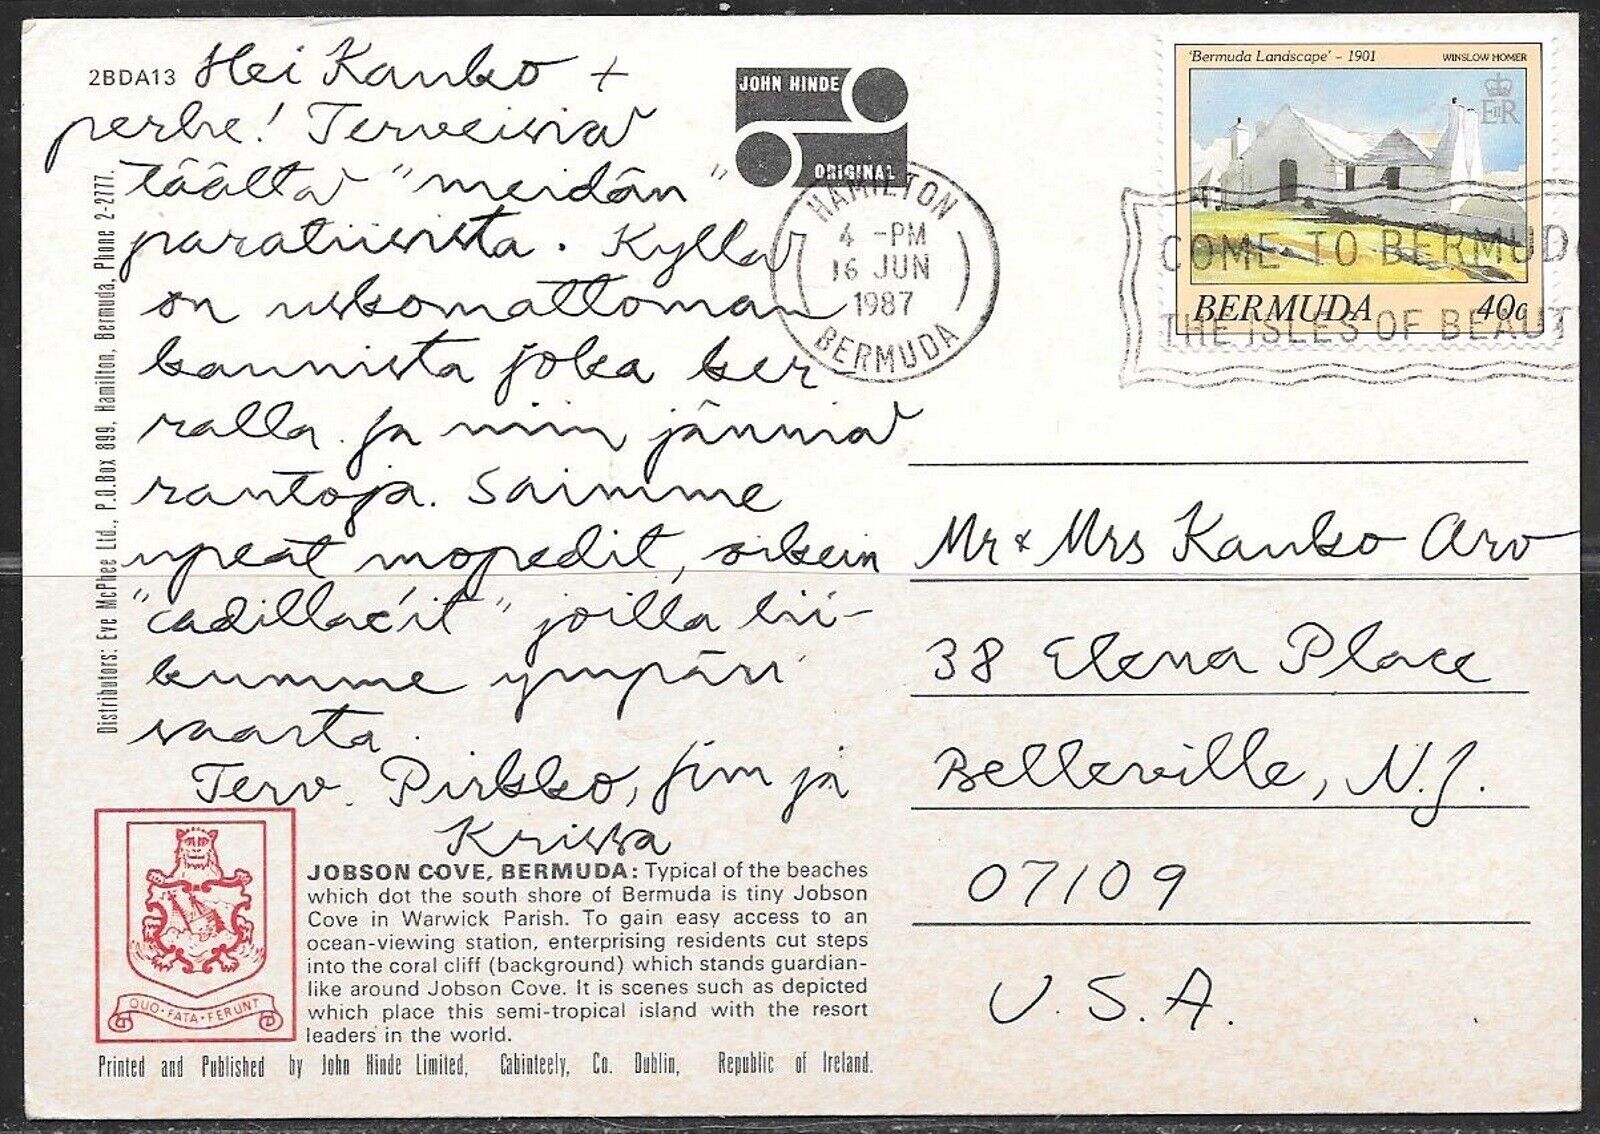 2BDA13
Hei Kauko +
perhe! Terveisiä
täältä "meidän"
paratiisista. Kyllä
on uskomattoman
kaunista joka ker-
ralla ja niin jänniä
rantoja. Saimme
upeat mopedit, oikein
"cadillac'it" joilla lii-
kumme ympäri
saarta.
Terv. Pirkko, Jim ja
Krissa
Distributors: Eve McPhee Ltd., P.O.Box 899, Hamilton, Bermuda, Phone 2-2777.
JOHN HINDE
ORIGINAL
HAMILTON
4 -PM
16 JUN
1987
BERMUDA
'Bermuda Landscape' – 1901 WINSLOW HOMER
EIIR
BERMUDA 40c
COME TO BERMUD
THE ISLES OF BEAUT
Mr & Mrs Kauko Aro
38 Elena Place
Belleville, N.J.
07109
U.S.A.
QUO·FATA·FERUNT
JOBSON COVE, BERMUDA: Typical of the beaches
which dot the south shore of Bermuda is tiny Jobson
Cove in Warwick Parish. To gain easy access to an
ocean-viewing station, enterprising residents cut steps
into the coral cliff (background) which stands guardian-
like around Jobson Cove. It is scenes such as depicted
which place this semi-tropical island with the resort
leaders in the world.
Printed and Published by John Hinde Limited, Cabinteely, Co. Dublin, Republic of Ireland.